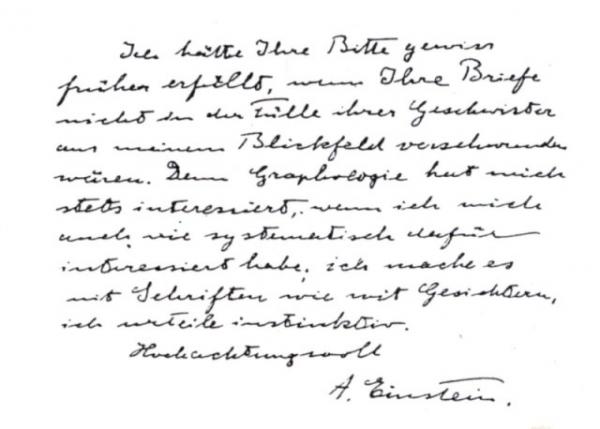 Ich hätte Ihre Bitte gewiss
früher erfüllt, wenn Ihre Briefe
nicht in der Fülle ihrer Geschwister
aus meinem Blickfeld verschwunden
wären. Denn Graphologie hat mich
stets interessiert, wenn ich mich
auch nie systematisch dafür
interessiert habe; ich mache es
mit Schriften wie mit Gesichtern,
ich urteile instinktiv.
Hochachtungsvoll
A. Einstein.